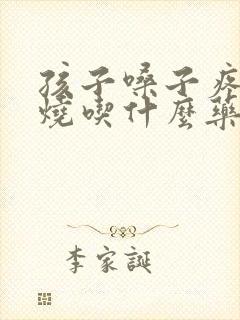 孩子嗓子疼
燒喫什麼藥
李家誕